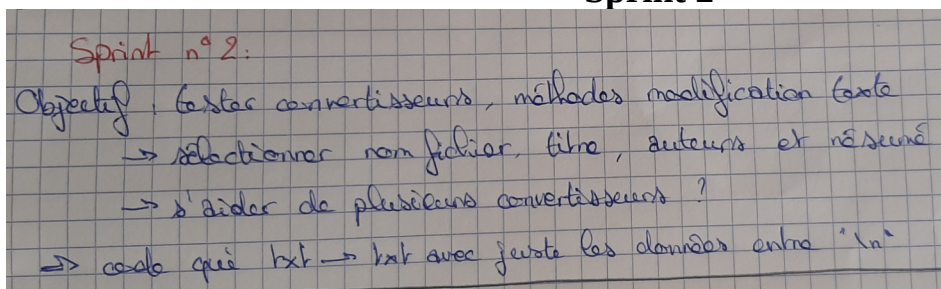 Sprint 2
Sprint n° 2:
Objectif : tester convertisseurs, méthodes modification texte
→ sélectionner nom fichier, titre, auteurs et résumé
→ s'aider de plusieurs convertisseurs ?
⇒ code qui txt → txt avec juste les données entre "\n"